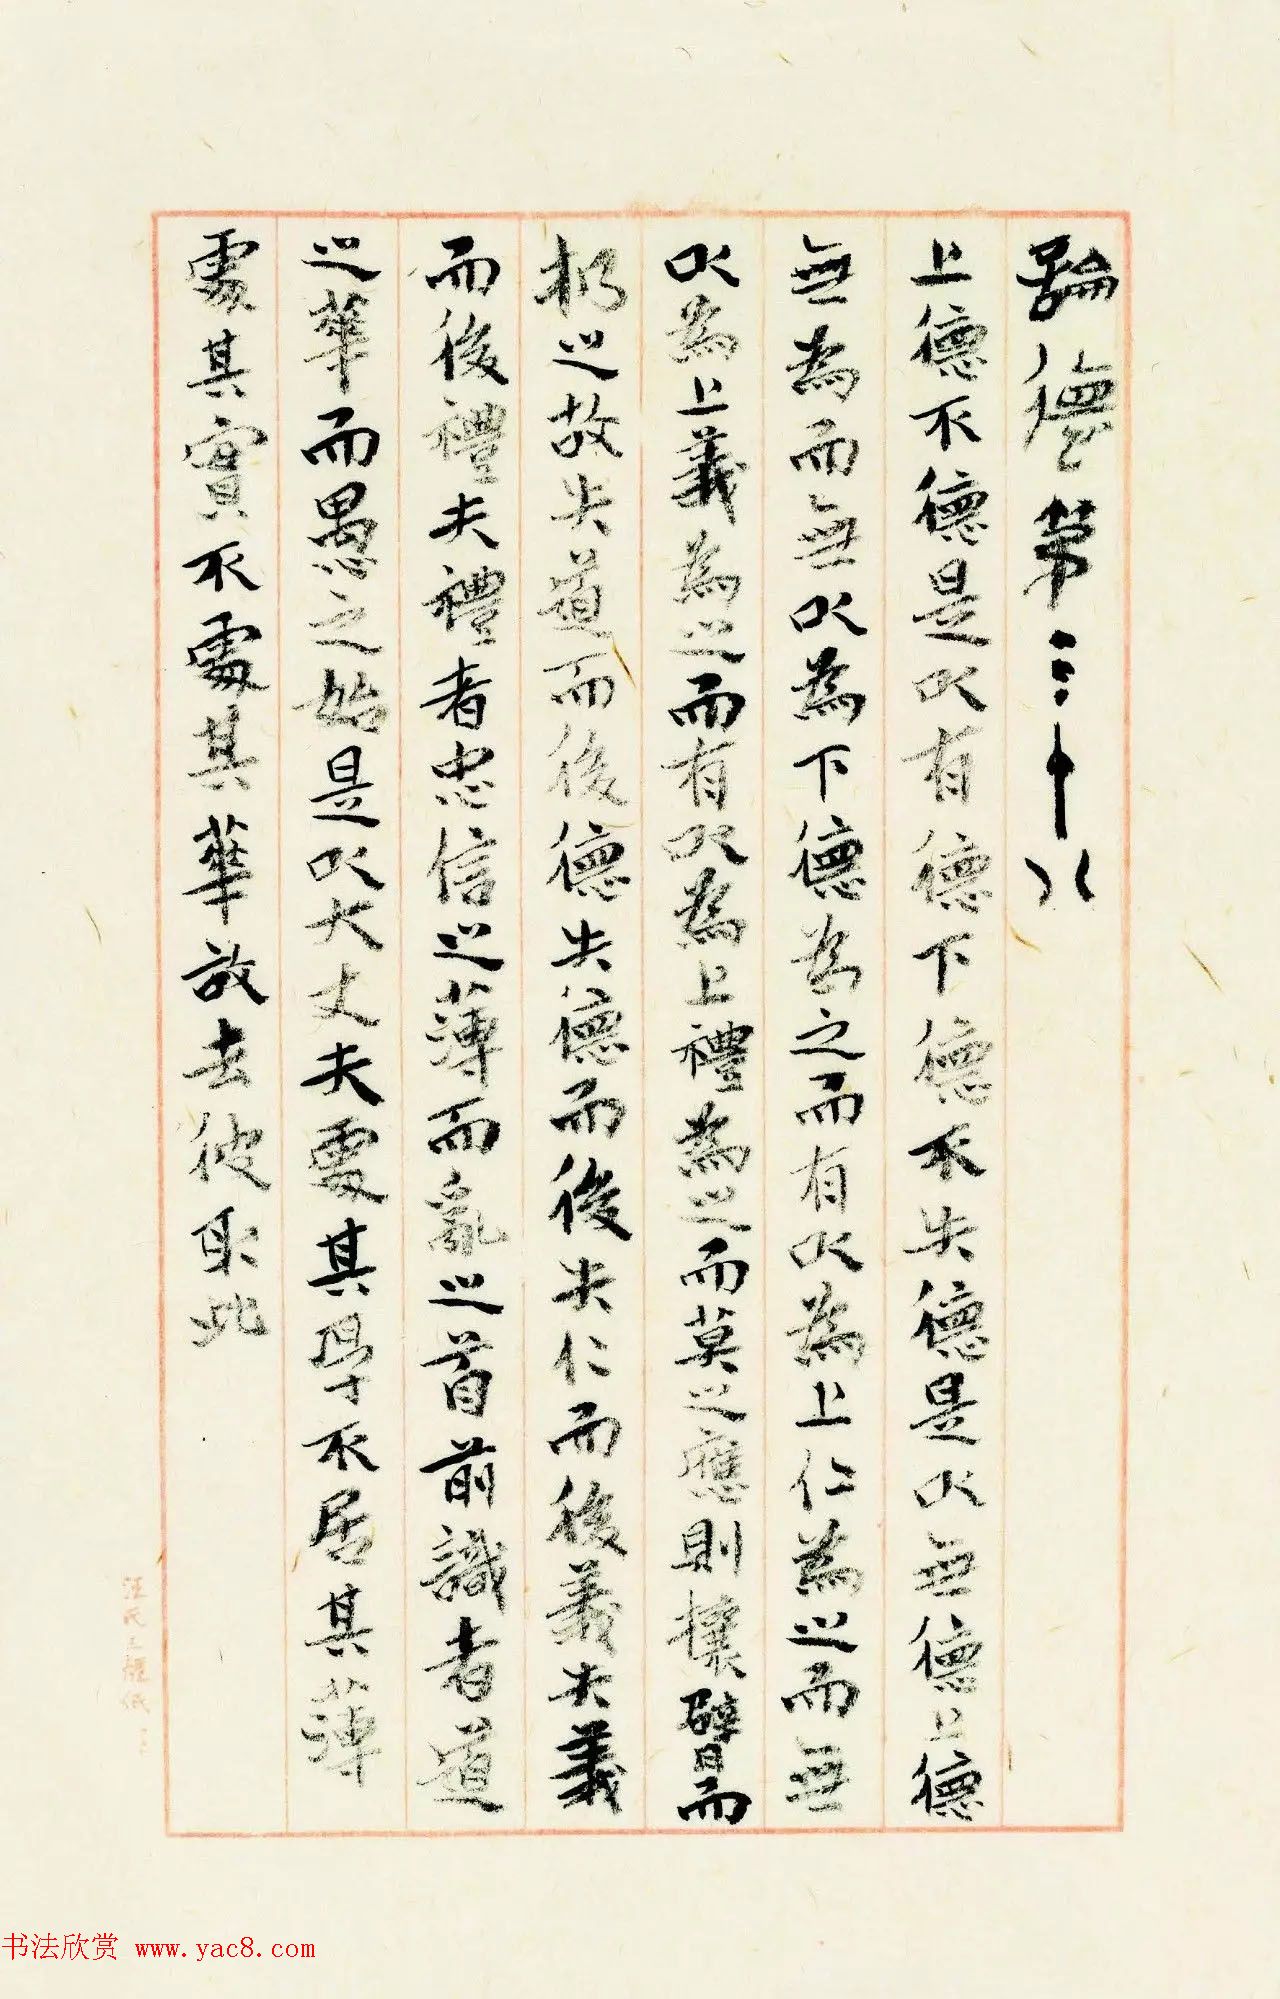 論德第三十八
上德不德是以有德下德不失德是以無德上德
無為而無以為下德為之而有以為上仁為之而無
以為上義為之而有以為上禮為之而莫之應則攘臂而
扔之故失道而後德失德而後失仁而後義失義
而後禮夫禮者忠信之薄而亂之首前識者道
之華而愚之始是以大丈夫處其厚不居其薄
處其實不處其華故去彼取此
书法欣赏 www.yac8.com